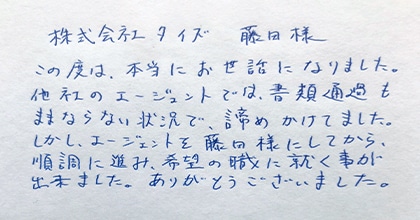 株式会社タイズ 藤田様
この度は、本当にお世話になりました。
他社のエージェントでは、書類通過も
ままならない状況で、諦めかけてました。
しかし、エージェントを藤田様にしてから、
順調に進み、希望の職に就く事が
出来ました。ありがとうございました。